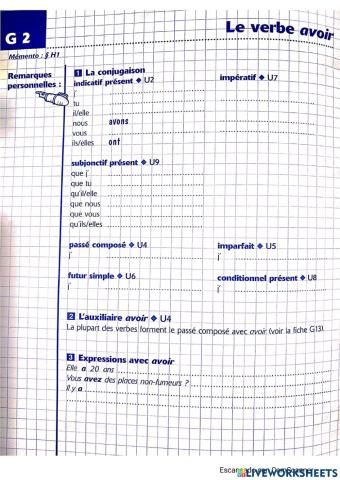 G 2
Le verbe avoir
Mémento : § H1
Remarques
personnelles :
1 La conjugaison
indicatif présent ◆ U2
j'
tu
il/elle
nous avons
vous
ils/elles ont
impératif ◆ U7
subjonctif présent ◆ U9
que j'
que tu
qu'il/elle
que nous
que vous
qu'ils/elles
passé composé ◆ U4
j'
imparfait ◆ U5
j'
futur simple ◆ U6
j'
conditionnel présent ◆ U8
j'
2 L'auxiliaire avoir ◆ U4
La plupart des verbes forment le passé composé avec avoir (voir la fiche G13).
3 Expressions avec avoir
Elle a 20 ans
Vous avez des places non-fumeurs ?
Il y a
LIVEWORKSHEETS